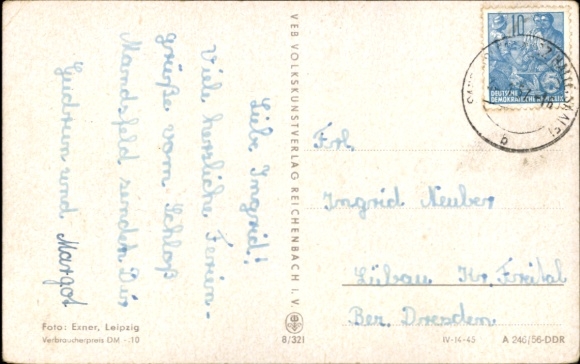 Liebe Ingrid!
Viele herzliche Ferien-
grüße vom Schloß
Mansfeld senden Dir
Gudrun und Margot
Foto: Exner, Leipzig
Verbraucherpreis DM -.10
VEB VOLKSKUNSTVERLAG REICHENBACH I. V.
8/321
10
DEUTSCHE
DEMOKRATISCHE REPUBLIK
b
Frl.
Ingrid Neuber
Lübau Kr. Freital
Bez. Dresden
IV-14-45 A 246/56-DDR